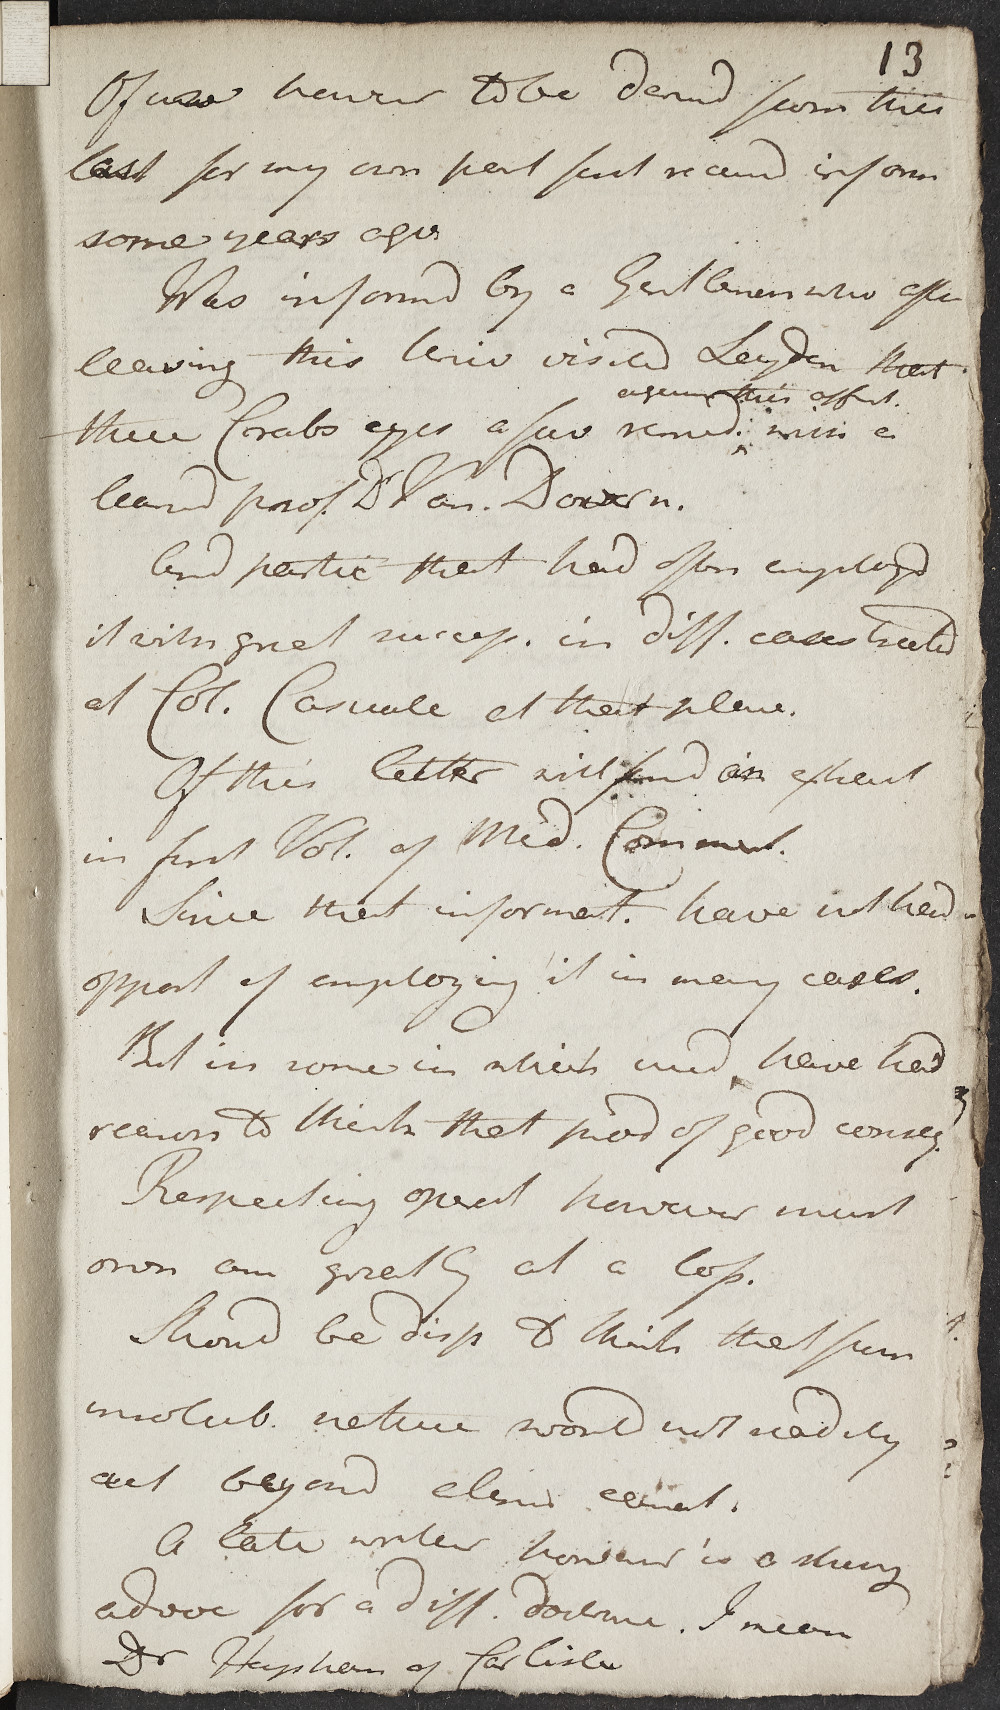 13
Of use however to be derivd from this
last for my own part first receivd inform
some years ago
Was informd by a Gentleman who after
leaving this Univ visited Leyden that
against this affect.
there Crabs eyes a fav remed. with a
learnd prof. Dr Van. Doevern.
And partic that had often employd
it with great success. in diff. cases treated
at Col. Casuale at that place.
Of this letter will find an extract
in first Vol. of Med. Comment.
Since that informat. have not had
opport of employing it in many cases.
But in some in which used have had
reason to think that prod of good conseq.
Respecting operat however must
own am greatly at a loss.
Should be disp to think that from
insolub. nature would not readily
act beyond alim canal.
A late writer however is a strong
advoc for a diff. doctrine. I mean
Dr Heysham of Carlisle